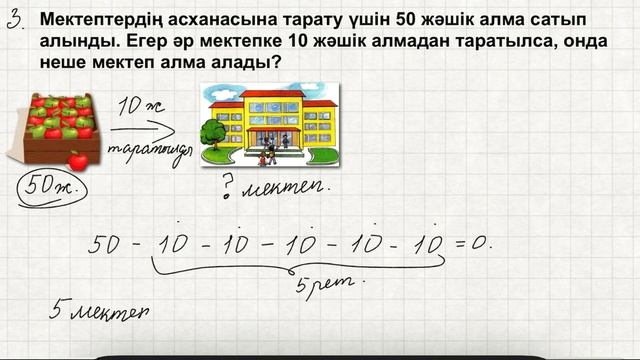 3. Мектептердің асханасына тарату үшін 50 жәшік алма сатып
алынды. Егер әр мектепке 10 жәшік алмадан таратылса, онда
неше мектеп алма алады?
10 ж
таратылды
50ж.
? мектеп.
50 - 10 - 10 - 10 - 10 - 10 = 0.
5 рет.
5 мектеп